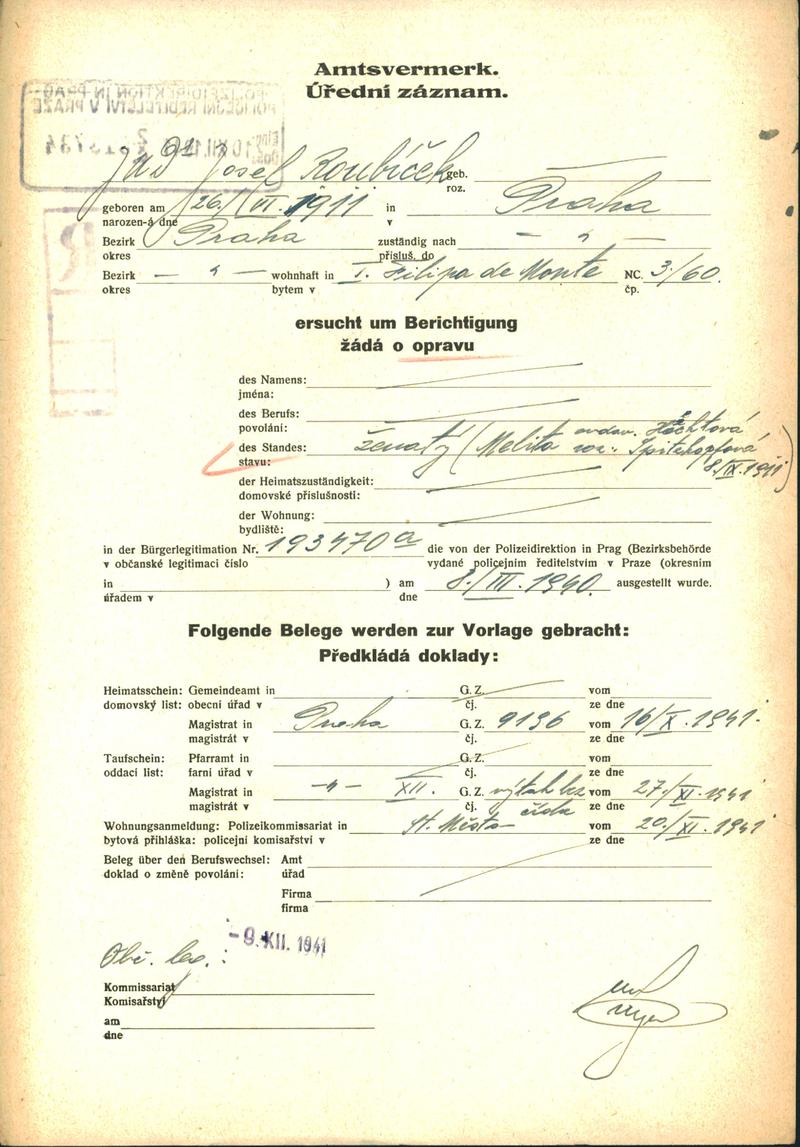 Amtsvermerk.
Úřední záznam.
POLIZEIDIREKTION IN PRAG
POLICEJNÍ ŘEDITELSTVÍ V PRAZE
JUDr Josef Roubíček geb.
roz.
geboren am 26./VI. 1911 in Praha
narozen-á dne v
Bezirk Praha zuständig nach — „ —
okres přísluš. do
Bezirk — „ — wohnhaft in I. Filipa de Monte NC. 3/60.
okres bytem v čp.
ersucht um Berichtigung
žádá o opravu
des Namens:
jména:
des Berufs:
povolání:
ovdov.
des Standes: ženatý (Melita roz.
stavu: 8./IX. 1911)
der Heimatszuständigkeit:
domovské příslušnosti:
der Wohnung:
bydliště:
in der Bürgerlegitimation Nr. 193470a die von der Polizeidirektion in Prag (Bezirksbehörde
v občanské legitimaci číslo vydané policejním ředitelstvím v Praze (okresním
in ) am 8./III. 1940. ausgestellt wurde.
úřadem v dne
Folgende Belege werden zur Vorlage gebracht:
Předkládá doklady:
Heimatsschein: Gemeindeamt in G. Z. vom
domovský list: obecní úřad v čj. ze dne
Magistrat in Praha G. Z. 9196 vom 16/X. 1941.
magistrát v čj. ze dne
Taufschein: Pfarramt in G. Z. vom
oddací list: farní úřad v čj. ze dne
Magistrat in —„— XII. G. Z. výtah bez vom 27./XI. 1941
magistrát v čj. čísla ze dne
Wohnungsanmeldung: Polizeikommissariat in St. Město vom 20./XI. 1941
bytová přihláška: policejní komisařství v ze dne
Beleg über den Berufswechsel: Amt
doklad o změně povolání: úřad
Firma
firma
- 9. XII. 1941
Obč. leg.:
Kommissariat
Komisařství
am
dne